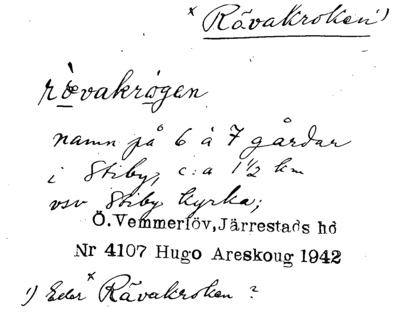 * Rävakroken 1)
ròvakrògen
namn på 6 à 7 gårdar
i Stiby, c:a 1 1/2 km
vsv Stiby kyrka;
Ö.Vemmerlöv, Järrestads hd
Nr 4107 Hugo Areskoug 1942
1) Eller * Råvakroken ?